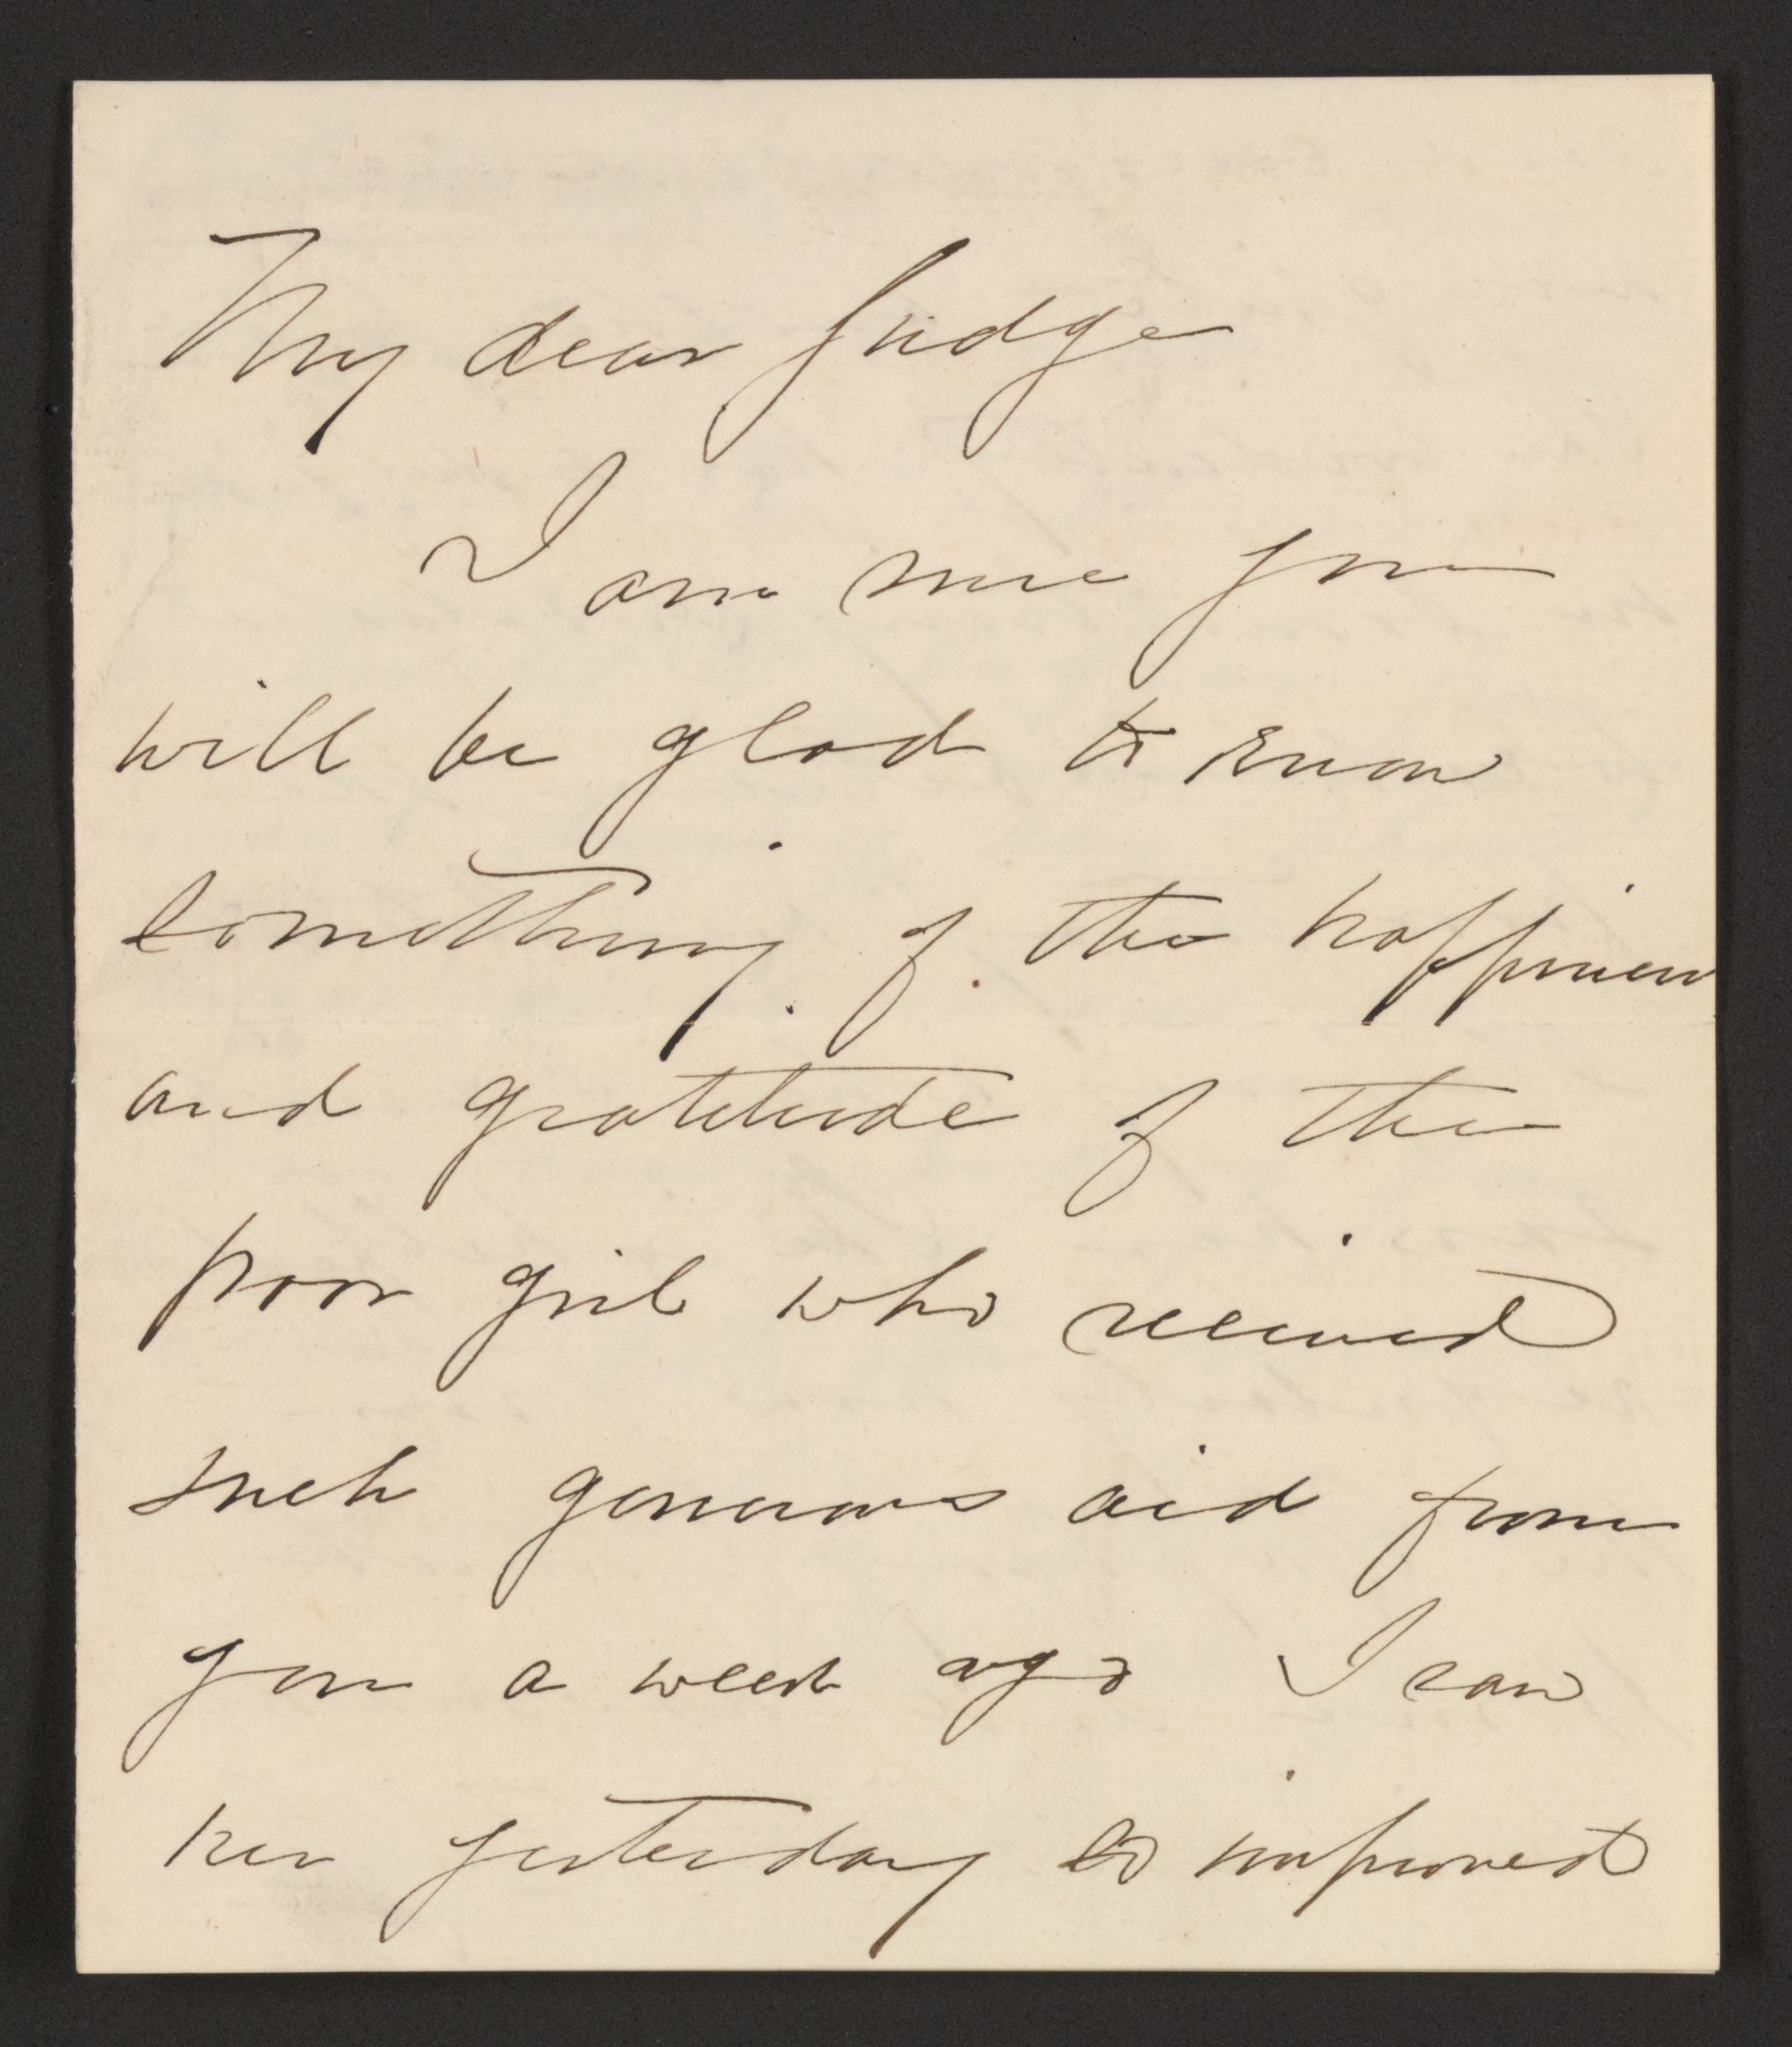 My dear Judge
I am sure you
will be glad to know
something of the happiness
and gratitude of the
poor girl who received
such generous aid from
you a week ago I saw
her yesterday so improved